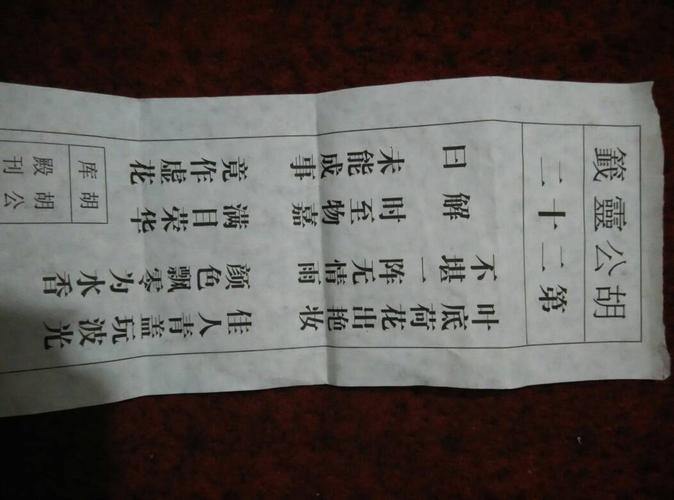 胡公靈籤
第二十二
叶底荷花出艳妆
佳人青盖玩波光
不堪一阵无情雨
颜色飘零为水香
解曰
时至物嘉
未能成事
满目荣华
竟作虚花
胡库
胡公
殿刊